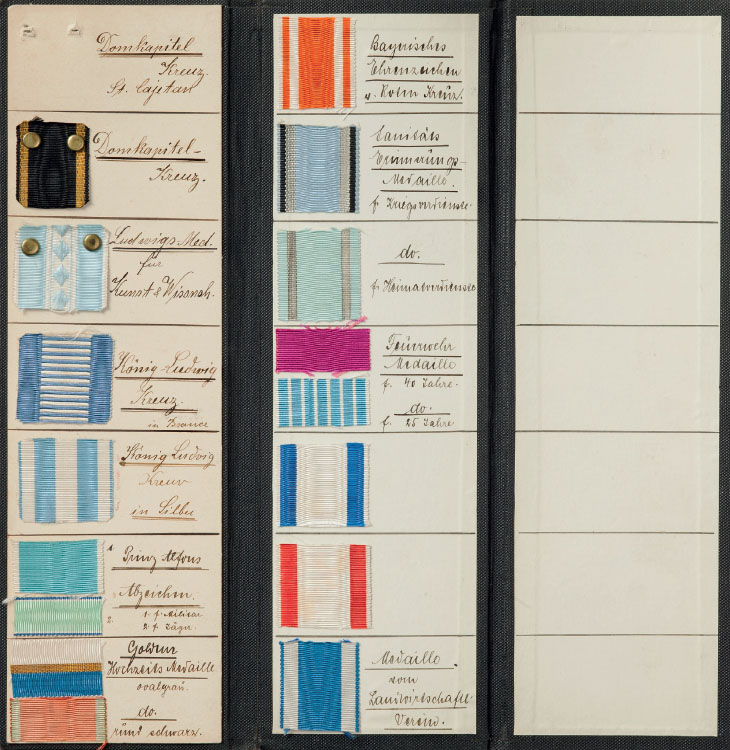 Domkapitel
Kreuz.
St. Cajetan
Domkapitel-
Kreuz.
Ludwigs Med.
für
Kunst & Wissensch.
König Ludwig
Kreuz.
in Bronce
König Ludwig
Kreuz
in Silber
1 Prinz Alfons
Abzeichen.
1. f. Militär
2. 2. f. Jäger.
Goldene
Hochzeits Medaille
ovalgrau.
do.
rund schwarz.
Bayerisches
Ehrenzeichen
v. Roten Kreuz.
Sanitäts
Erinnerungs-
Medaille.
f. Kriegsverdienste.
do.
f. Heimatverdienste
Feuerwehr
Medaille
f. 40 Jahre.
do.
f. 25 Jahre
Medaille
vom
Landwirtschaftl.
Verein.